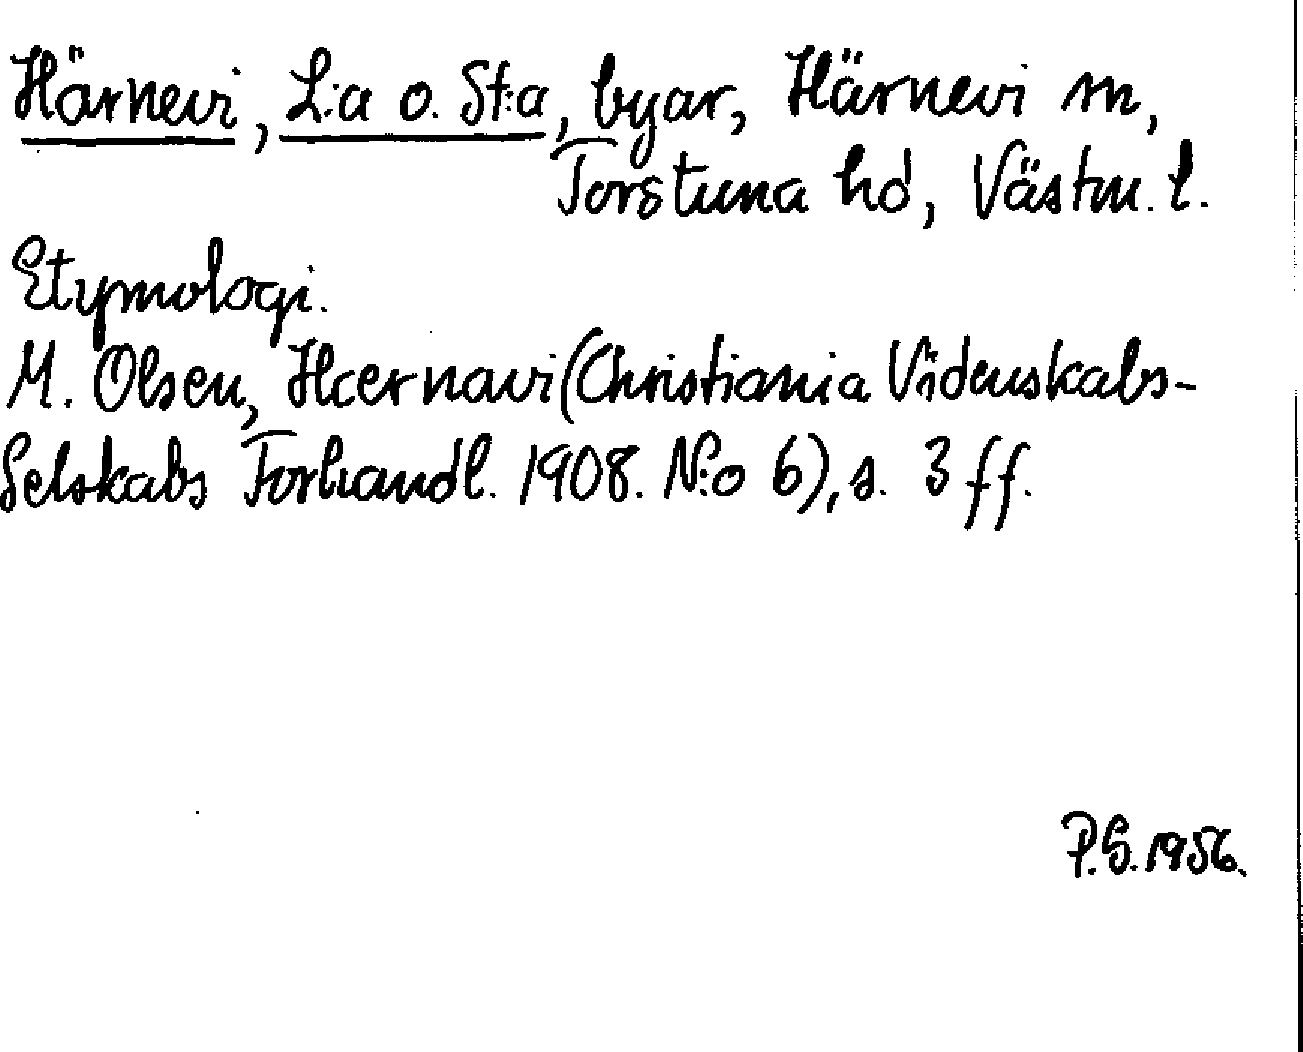 Härnevi, L:a o. St:a, byar, Härnevi sn,
Torstuna hd, Västm. l.
Etymologi.
M. Olsen, Hærnavi (Christiania Videnskabs-
Selskabs Forhandl. 1908. N:o 6), s. 3 ff.
P.G. 1956.